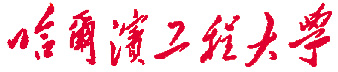 哈爾濱工程大學